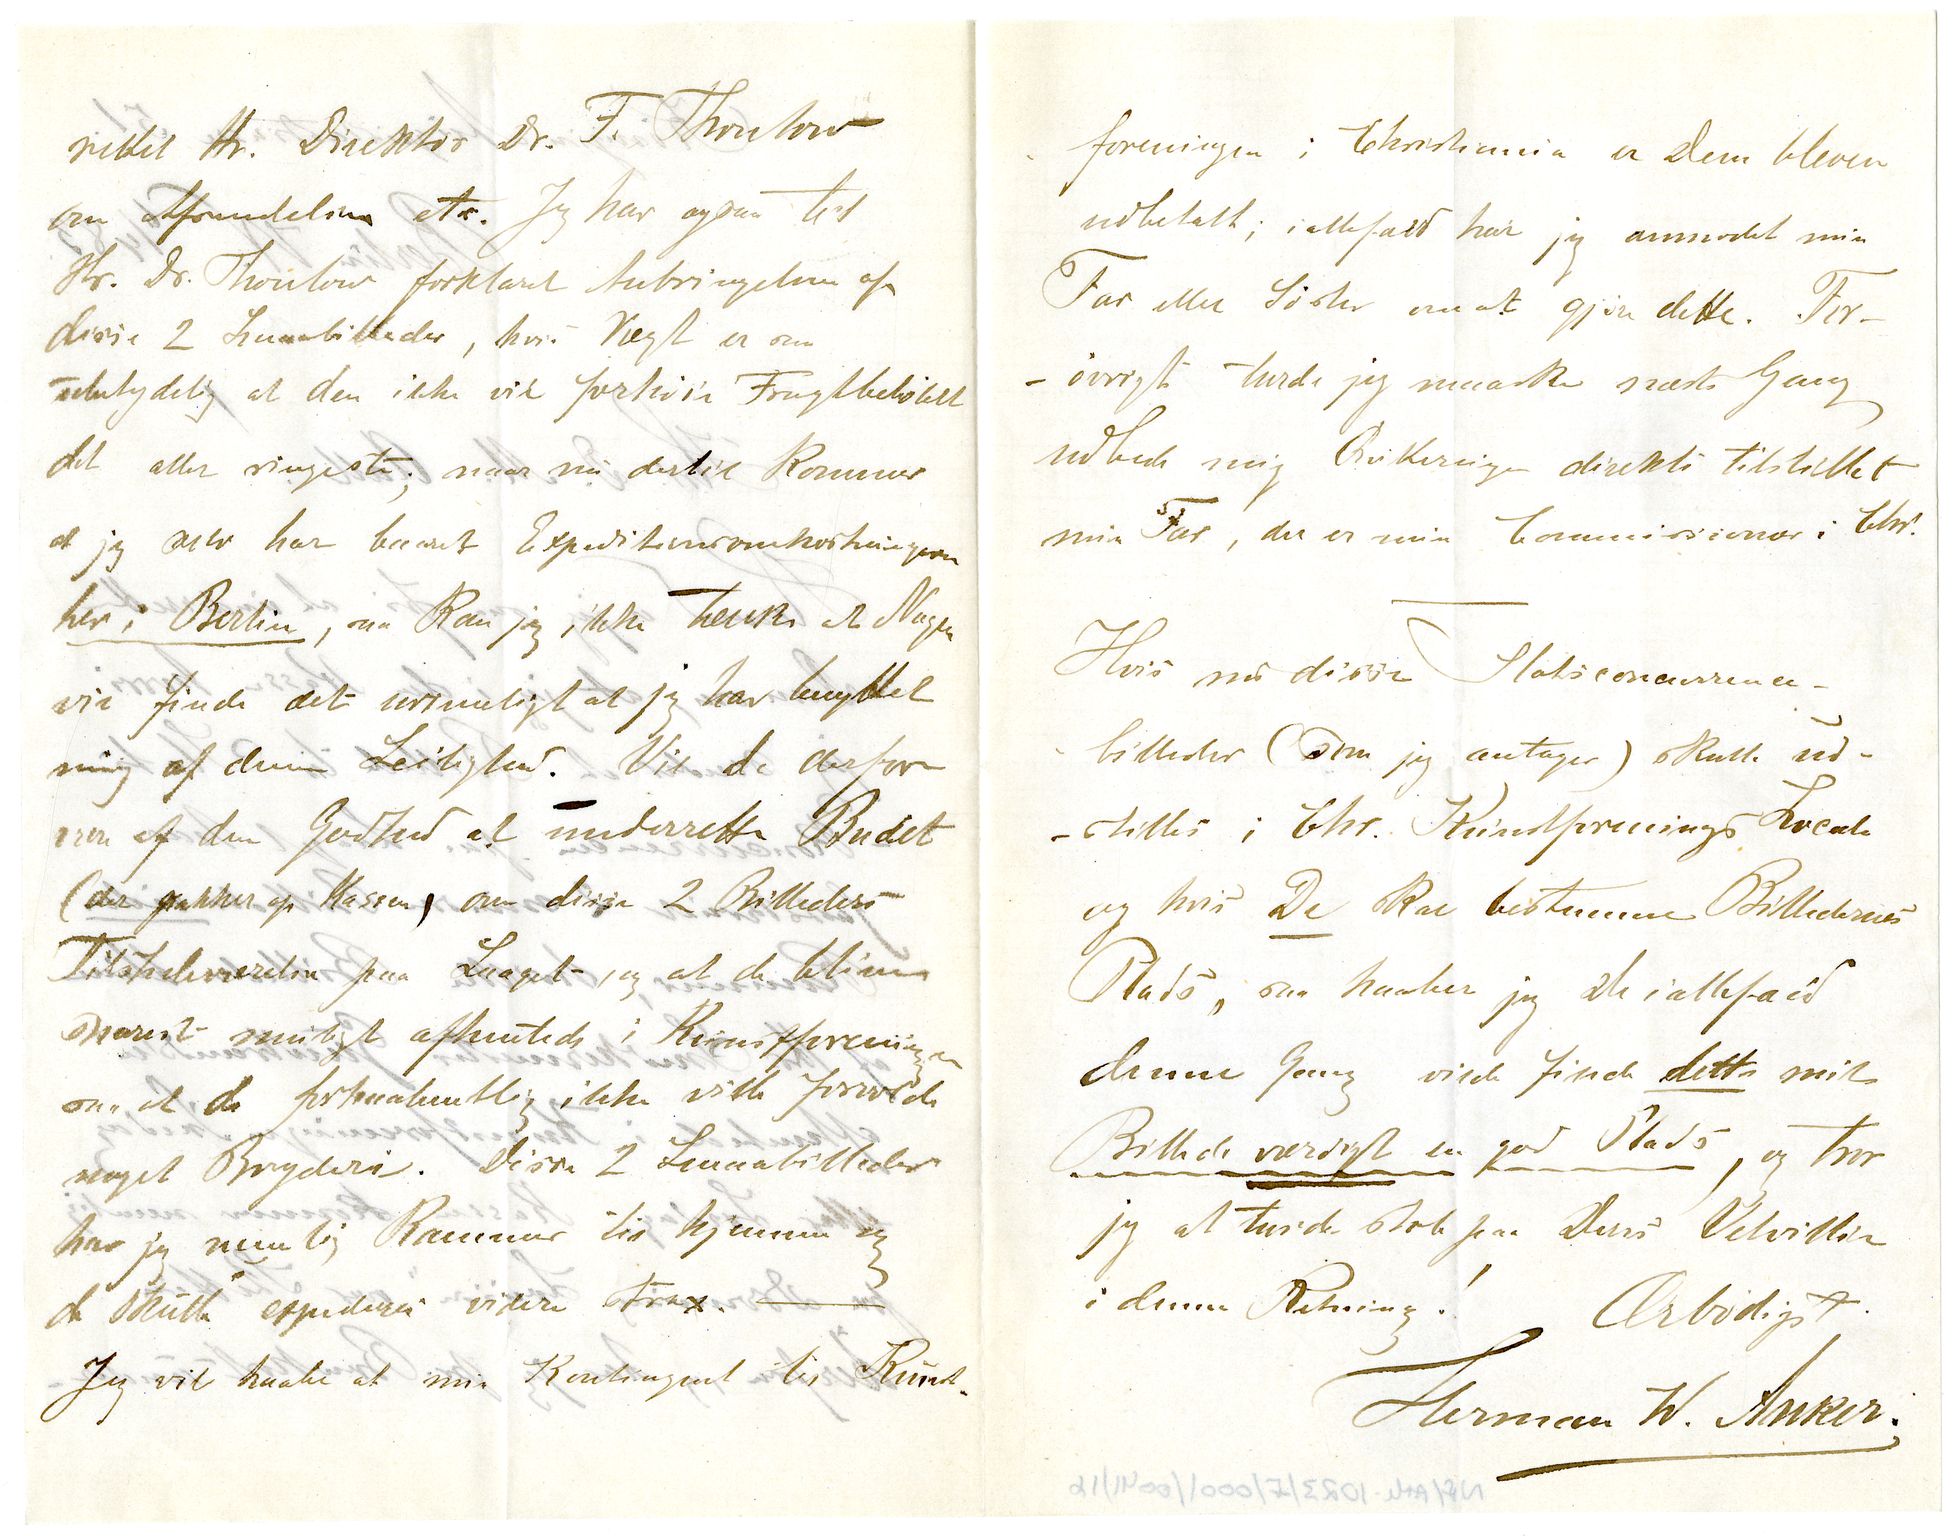 rettet Hr. Direktør Dr. F. Thoulow
om Afsendelsen etc. Jeg har ogsaa til
Hr. Dr. Thoulow forklaret Anbringelsen af
disse 2 Smaabilleder, hvis Vægt er saa
ubetydelig at den ikke vil forhøie Fragtbeløbet
det aller ringeste; naar nu dertil kommer
at jeg selv har baaret Expeditionsomkostningerne
her i Berlin, saa kan jeg ikke tænke at Nogen
vil finde det urimeligt at jeg har benyttet
mig af denne Leilighed. Vil de derfor
være af den Godhed at underrette Budet
(der pakker op Kassen) om disse 2 Billeders
Tilstedeværelse paa Laaget, og at de blive
snarest muligt afhentede i Kunstforeningen
saa at de forhaabentlig ikke ville forvolde
noget Bryderi. Disse 2 Smaabilleder
har jeg nemlig Rammer til hjemme og
de skulle expederes videre strax.
Jeg vil haabe at min Kontingent til Kunst-
foreningen i Christiania er Dem bleven
udbetalt; iallefald har jeg anmodet min
Far eller Søster om at gjøre dette. For-
-øvrigt turde jeg maaske næste Gang
udbede mig Qvitteringen direkte tilstillet
min Far, der er min Commissionær i Chr.
Hvis nu disse Statsconcurrence-
billeder (som jeg antager) skulle ud-
-stilles i Chr. Kunstforenings Locale
og hvis De skal bestemme Billedernes
Plads, saa haaber jeg De iallefald
denne Gang vilde finde dette mit
Billede værdigt en god Plads, og tror
jeg at turde stole paa Deres Velvillie
i denne Retning! Ærbødigst.
Herman W. Anker.
NB/Ark-1023/F/0001/0041/16